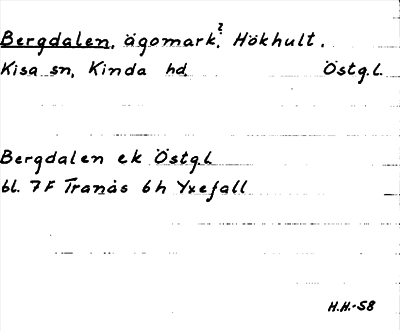 Bergdalen, ägomark?, Hökhult.
Kisa sn, Kinda hd. Östg.l.
Bergdalen ek Östg.l
bl. 7F Tranås 6h Yxefall
H.H.-58